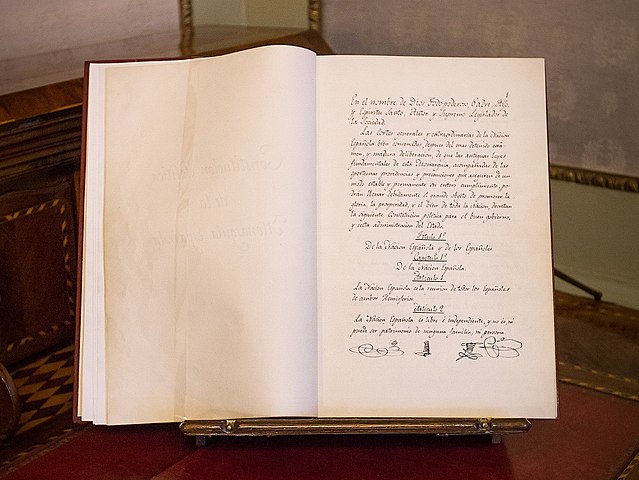 1
En el nombre de Dios Todopoderoso, Padre, Hijo,
y Espiritu Santo, Autor y Supremo Legislador de
la Sociedad.
Las Cortes generales y extraordinarias de la Nacion
Española bien convencidas, despues del mas detenido exa-
men, y madura deliberacion, de que las antiguas leyes
fundamentales de esta Monarquia, acompañadas de las
oportunas providencias y precauciones que aseguren de un
modo estable y permanente su entero cumplimiento, po-
dran llenar debidamente el grande objeto de promover la
gloria, la prosperidad, y el bien de toda la nacion, decretan
la siguiente Constitucion politica para el buen gobierno,
y recta administracion del Estado.
Titulo 1º
De la Nacion Española y de los Españoles.
Capitulo 1º
De la Nacion Española.
Articulo 1.
La Nacion Española es la reunion de todos los Españoles
de ambos Hemisferios.
Articulo 2.
La Nacion Española es libre é independiente, y no es, ni
puede ser patrimonio de ninguna familia, ni persona.